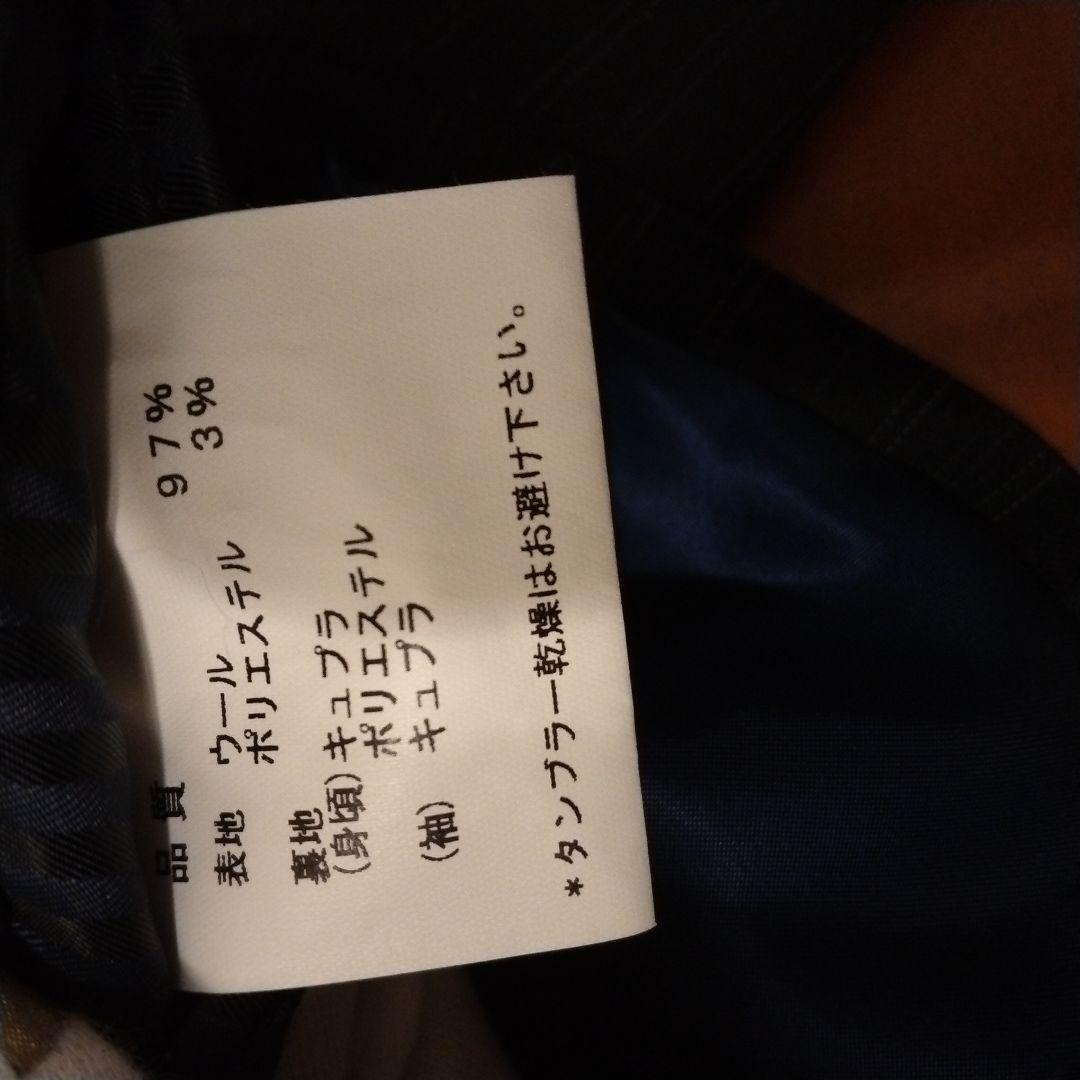 品質
表地 ウール 97%
ポリエステル 3%
裏地
(身頃)キュプラ
ポリエステル
(袖) キュプラ
*タンブラー乾燥はお避け下さい。